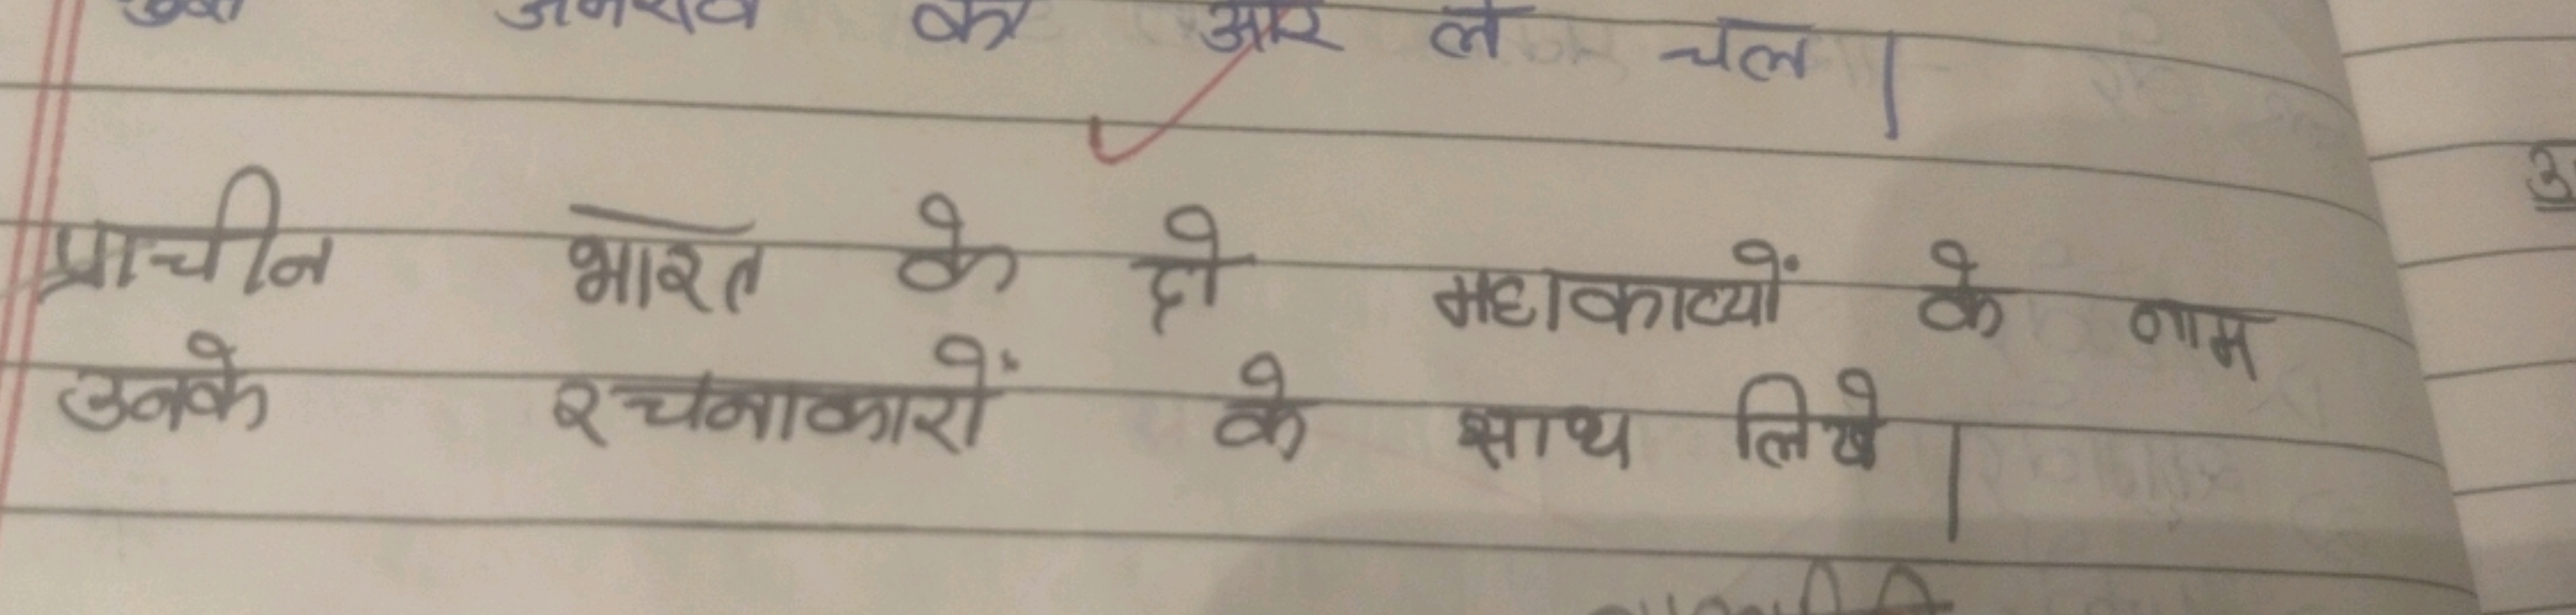 की ओर ले चल |
प्राचीन भारत के दो महाकाव्यों के नाम
उनके रचनाकारों के साथ लिखे |